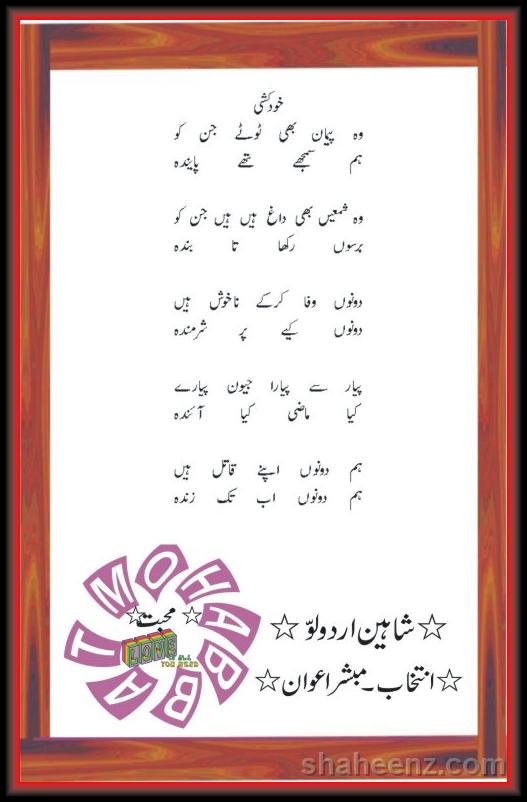 خودکشی
وہ پیمان بھی ٹوٹے جن کو
ہم سمجھے تھے پایندہ
وہ شمعیں بھی داغ ہیں ہیں جن کو
برسوں رکھا تا بندہ
دونوں وفا کرکے ناخوش ہیں
دونوں کیے پر شرمندہ
پیار سے پیارا جیون پیارے
کیا ماضی کیا آئندہ
ہم دونوں اپنے قاتل ہیں
ہم دونوں اب تک زندہ
MOHABBAT
☆ محبت ☆
LOVE
IS ALL
YOU NEED
☆ شاہین اردو لوّ ☆
☆ انتخاب۔مبشر اعوان ☆
shaheenz.com